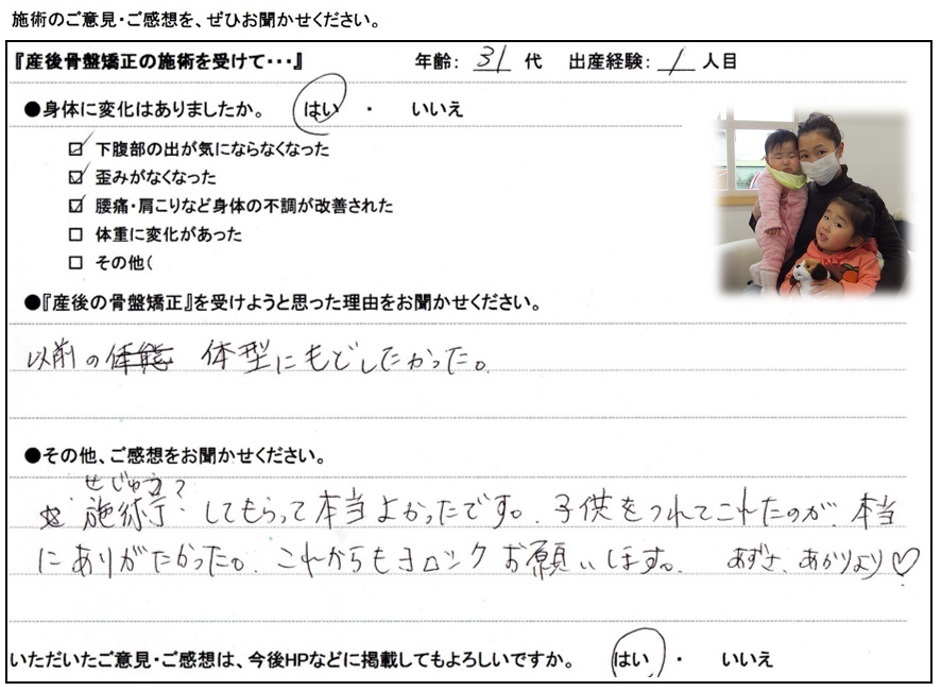 施術のご意見・ご感想を、ぜひお聞かせください。
『産後骨盤矯正の施術を受けて・・・』 年齢: 31 代 出産経験: 1 人目
●身体に変化はありましたか。 はい ・ いいえ
☑ 下腹部の出が気にならなくなった
☑ 歪みがなくなった
☑ 腰痛・肩こりなど身体の不調が改善された
□ 体重に変化があった
□ その他(
●『産後の骨盤矯正』を受けようと思った理由をお聞かせください。
以前の 体型にもどしたかった。
●その他、ご感想をお聞かせください。
せじゅつ?
施術 してもらって本当よかったです。子供をつれてこれたのが、本当
にありがたかった。これからもヨロシクお願いします。 あずさ、あかりより♡
いただいたご意見・ご感想は、今後HPなどに掲載してもよろしいですか。 はい ・ いいえ